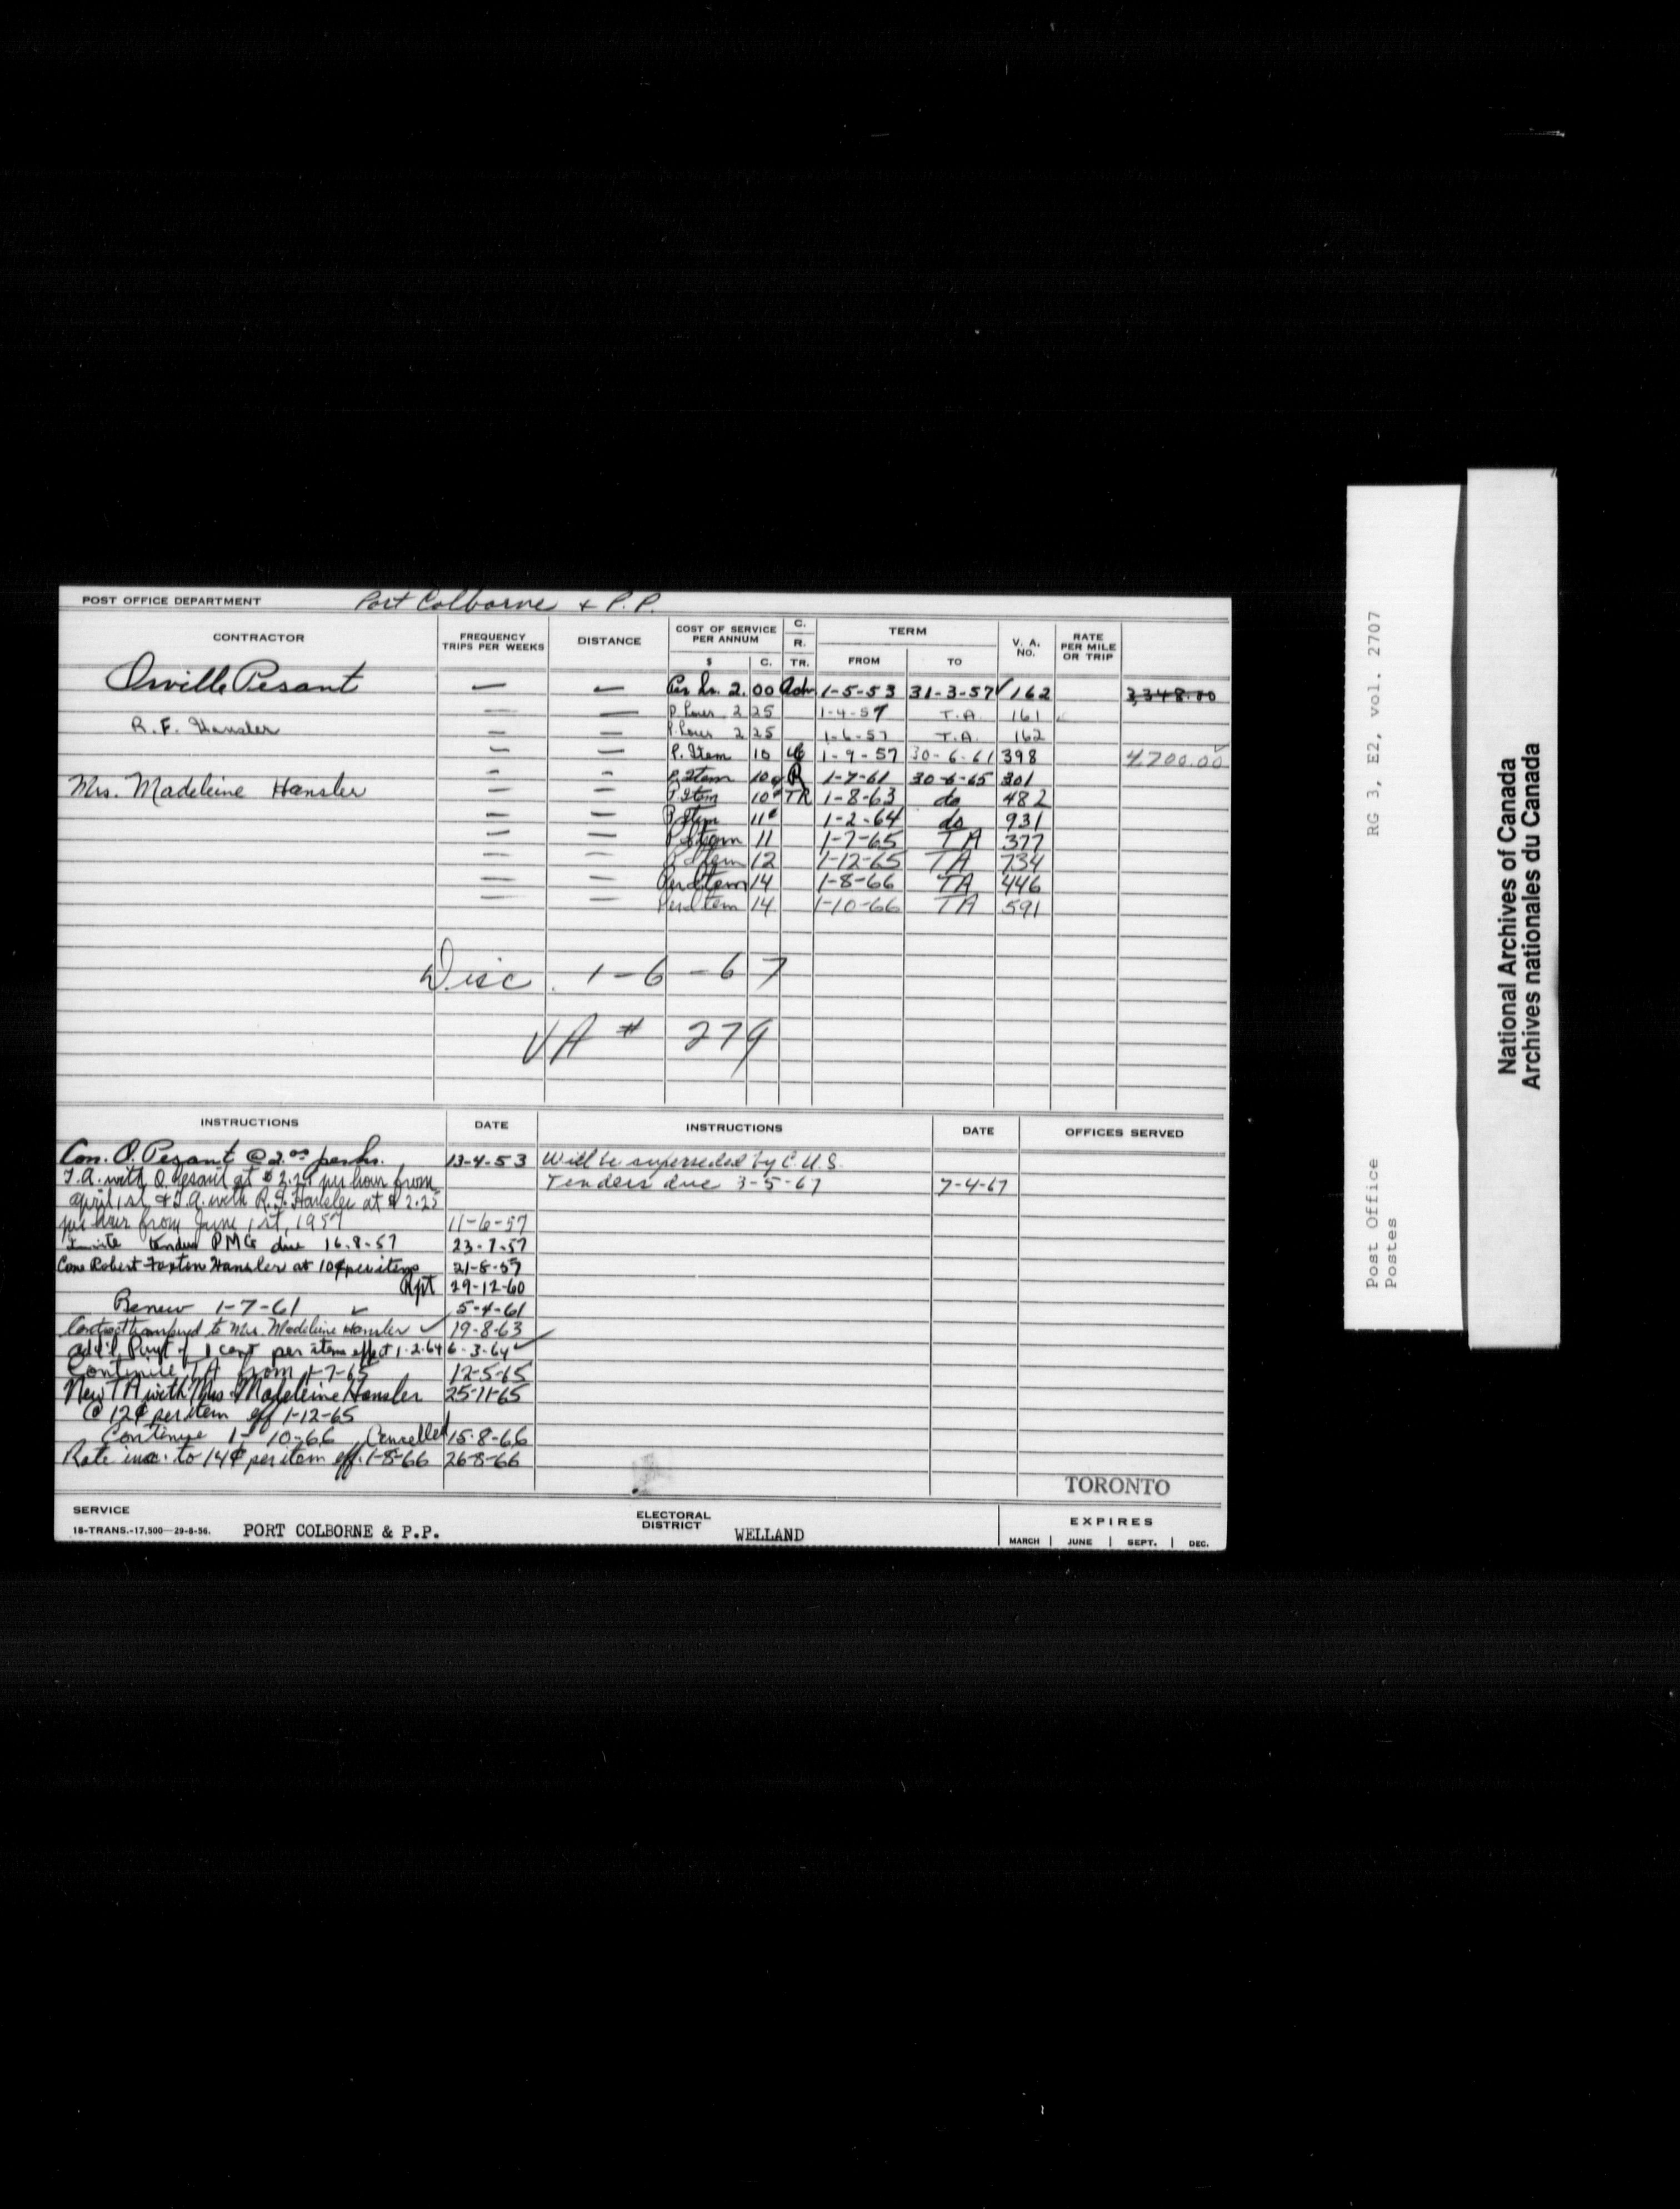 POST OFFICE DEPARTMENT Port Colborne & P.P.
CONTRACTOR FREQUENCY TRIPS PER WEEKS DISTANCE COST OF SERVICE PER ANNUM $ C. C. R. TR. TERM FROM TO V. A. NO. RATE PER MILE OR TRIP
Orville Pesant — — Per hr. 2.00 1-5-53 31-3-57 162 3,348.00
— — P. hour 2 25 1-4-57 T.A. 161
R. F. Hansler — — P. hour 2 25 1-6-57 T.A. 162
— — P. Item 10 1-9-57 30-6-61 398 4700.00
— — P. Item 10¢ R 1-7-61 30-6-65 301
Mrs. Madeleine Hansler — — P Item 10¢ TR 1-8-63 do 482
— — P Item 11¢ 1-2-64 do 931
— — P Item 11 1-7-65 TA 377
— — P Item 12 1-12-65 TA 734
— — Per Item 14 1-8-66 TA 446
— — Per Item 14 1-10-66 TA 591
Disc. 1-6-67
VA # 279
INSTRUCTIONS DATE INSTRUCTIONS DATE OFFICES SERVED
Con. O. Pesant @ 2.00 per hr. 13-4-53 Will be superseded by C.U.S.
T.A. with O. Pesant at $2.25 per hour from Tenders due 3-5-67 7-4-67
April 1st & T.A. with R.F. Hansler at $2.25
per hour from June 1st, 1957 11-6-57
Invite tenders PMG due 16.8-57 23-7-57
Con Robert Foxton Hansler at 10¢ per item 21-8-57
Rpt 29-12-60
Renew 1-7-61 ✓ 5-4-61
Contract transferred to Mrs. Madeleine Hansler ✓ 19-8-63
add'l Paymt of 1 cent per item effect 1-2-64 6-3-64 ✓
Continue TA from 1-7-65 12-5-65
New TA with Mrs. Madeleine Hansler 25-11-65
@ 12¢ per item eff 1-12-65
Continue 1-10-66 Cancelled 15-8-66
Rate inc. to 14¢ per item eff. 1-8-66 26-8-66
TORONTO
SERVICE
18-TRANS.-17,500—29-8-56. PORT COLBORNE & P.P. ELECTORAL DISTRICT WELLAND EXPIRES
MARCH | JUNE | SEPT. | DEC.
RG 3, E2, vol. 2707
Post Office
Postes
National Archives of Canada
Archives nationales du Canada